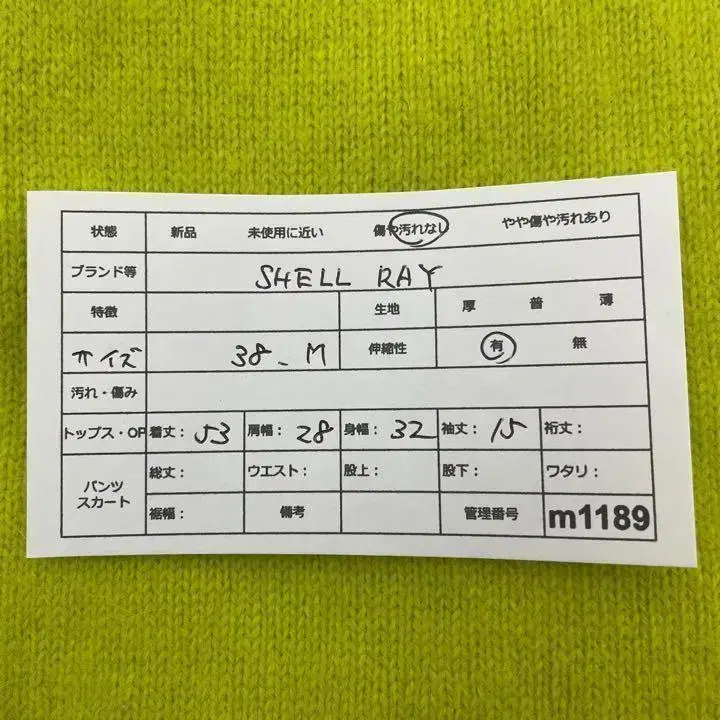 状態 新品 未使用に近い 傷や汚れなし やや傷や汚れあり
ブランド等 SHELL RAY
特徴 生地 厚 普 薄
サイズ 38-M 伸縮性 有 無
汚れ・傷み
トップス・OP 着丈: 53 肩幅: 28 身幅: 32 袖丈: 15 裄丈:
パンツ スカート 総丈: ウエスト: 股上: 股下: ワタリ:
裾幅: 備考 管理番号 m1189